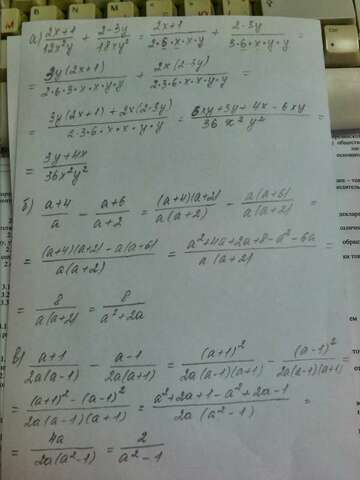 а) (2x+1)/(12x²y) + (2-3y)/(18xy²) = (2x+1)/(2·6·x·x·y) + (2-3y)/(3·6·x·y·y) =
= (3y(2x+1))/(2·6·3·x·x·y·y) + (2x(2-3y))/(2·3·6·x·x·y·y) =
= (3y(2x+1)+2x(2-3y))/(2·3·6·x·x·y·y) = (6xy+3y+4x-6xy)/(36x²y²) =
= (3y+4x)/(36x²y²)
б) (a+4)/a - (a+6)/(a+2) = ((a+4)(a+2))/(a(a+2)) - (a(a+6))/(a(a+2)) =
= ((a+4)(a+2)-a(a+6))/(a(a+2)) = (a²+4a+2a+8-a²-6a)/(a(a+2)) =
= 8/(a(a+2)) = 8/(a²+2a)
в) (a+1)/(2a(a-1)) - (a-1)/(2a(a+1)) = (a+1)²/(2a(a-1)(a+1)) - (a-1)²/(2a(a-1)(a+1)) =
= ((a+1)²-(a-1)²)/(2a(a-1)(a+1)) = (a²+2a+1-a²+2a-1)/(2a(a²-1)) =
= 4a/(2a(a²-1)) = 2/(a²-1)